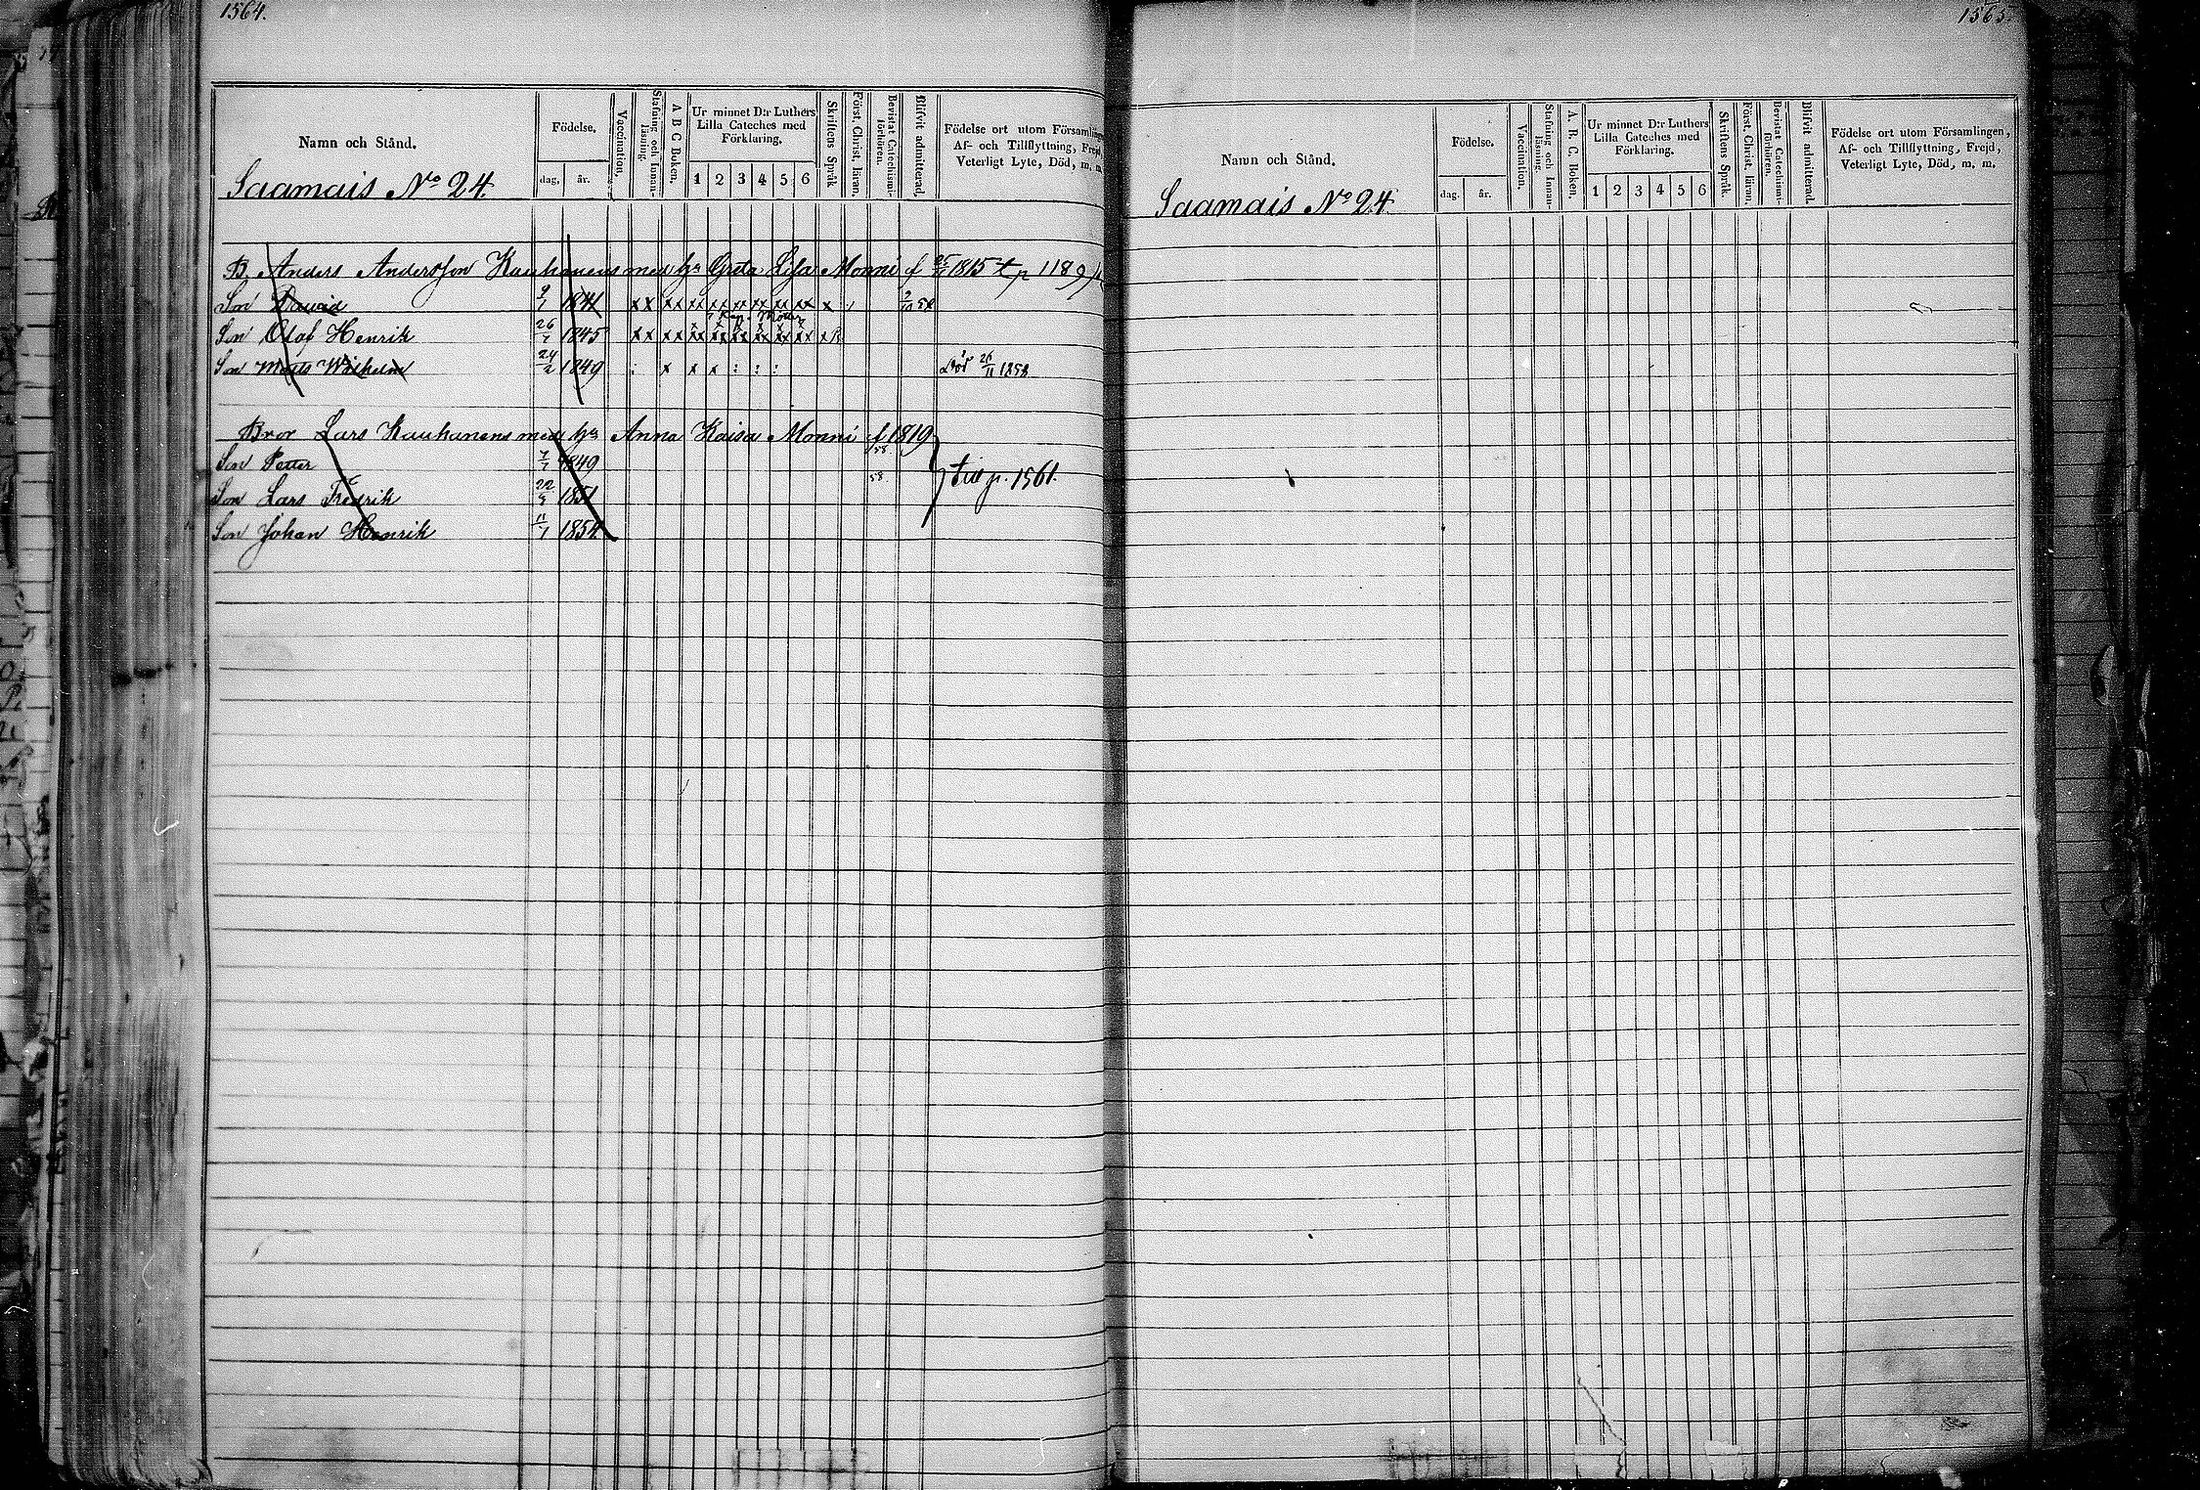 1564.
Namn och Stånd.
Födelse.
dag, år.
Vaccination,
Stafning och Innan-läsning.
A B C Boken.
Ur minnet D:r Luthers
Lilla Cateches med
Förklaring.
1 2 3 4 5 6
Skriftens Språk
Först. Christ. läran.
Bevistat Catechismi-förhören.
Blifvit admitterad.
Födelse ort utom Församlingen
Af- och Tillflyttning, Frejd,
Veterligt Lyte, Död, m. m.
Saamais No 24.
B. Anders Andersson Kauhanens med h: Greta Lisa Monni f 25 1815 p 1189
Son David 9/1 1841 x x x x x x x x x x x x x x x x x 58
Kap.
Son Olof Henrik 26/7 1845 x x x x x x x x x x x x x x x x x
Son Matts Wilhelm 24/2 1849 : x x x : : : Död 26/11 1858
Bror Lars Kauhanens med h: Anna Kaisa Monni f 1819
58
Son Petter 7/7 1849
58 till p. 1561.
Son Lars Fredrik 22/5 1851
Son Johan Henrik 11/7 1854
1565.
Namn och Stånd.
Födelse.
dag. år.
Vaccination,
Stafning och Innan-läsning.
A. B. C. Boken.
Ur minnet D:r Luthers
Lilla Cateches med
Förklaring.
1 2 3 4 5 6
Skriftens Språk.
Först. Christ. läran.
Bevistat Catechismi-förhören.
Blifvit admitterad.
Födelse ort utom Församlingen,
Af- och Tillflyttning, Frejd,
Veterligt Lyte, Död, m. m.
Saamais No 24.